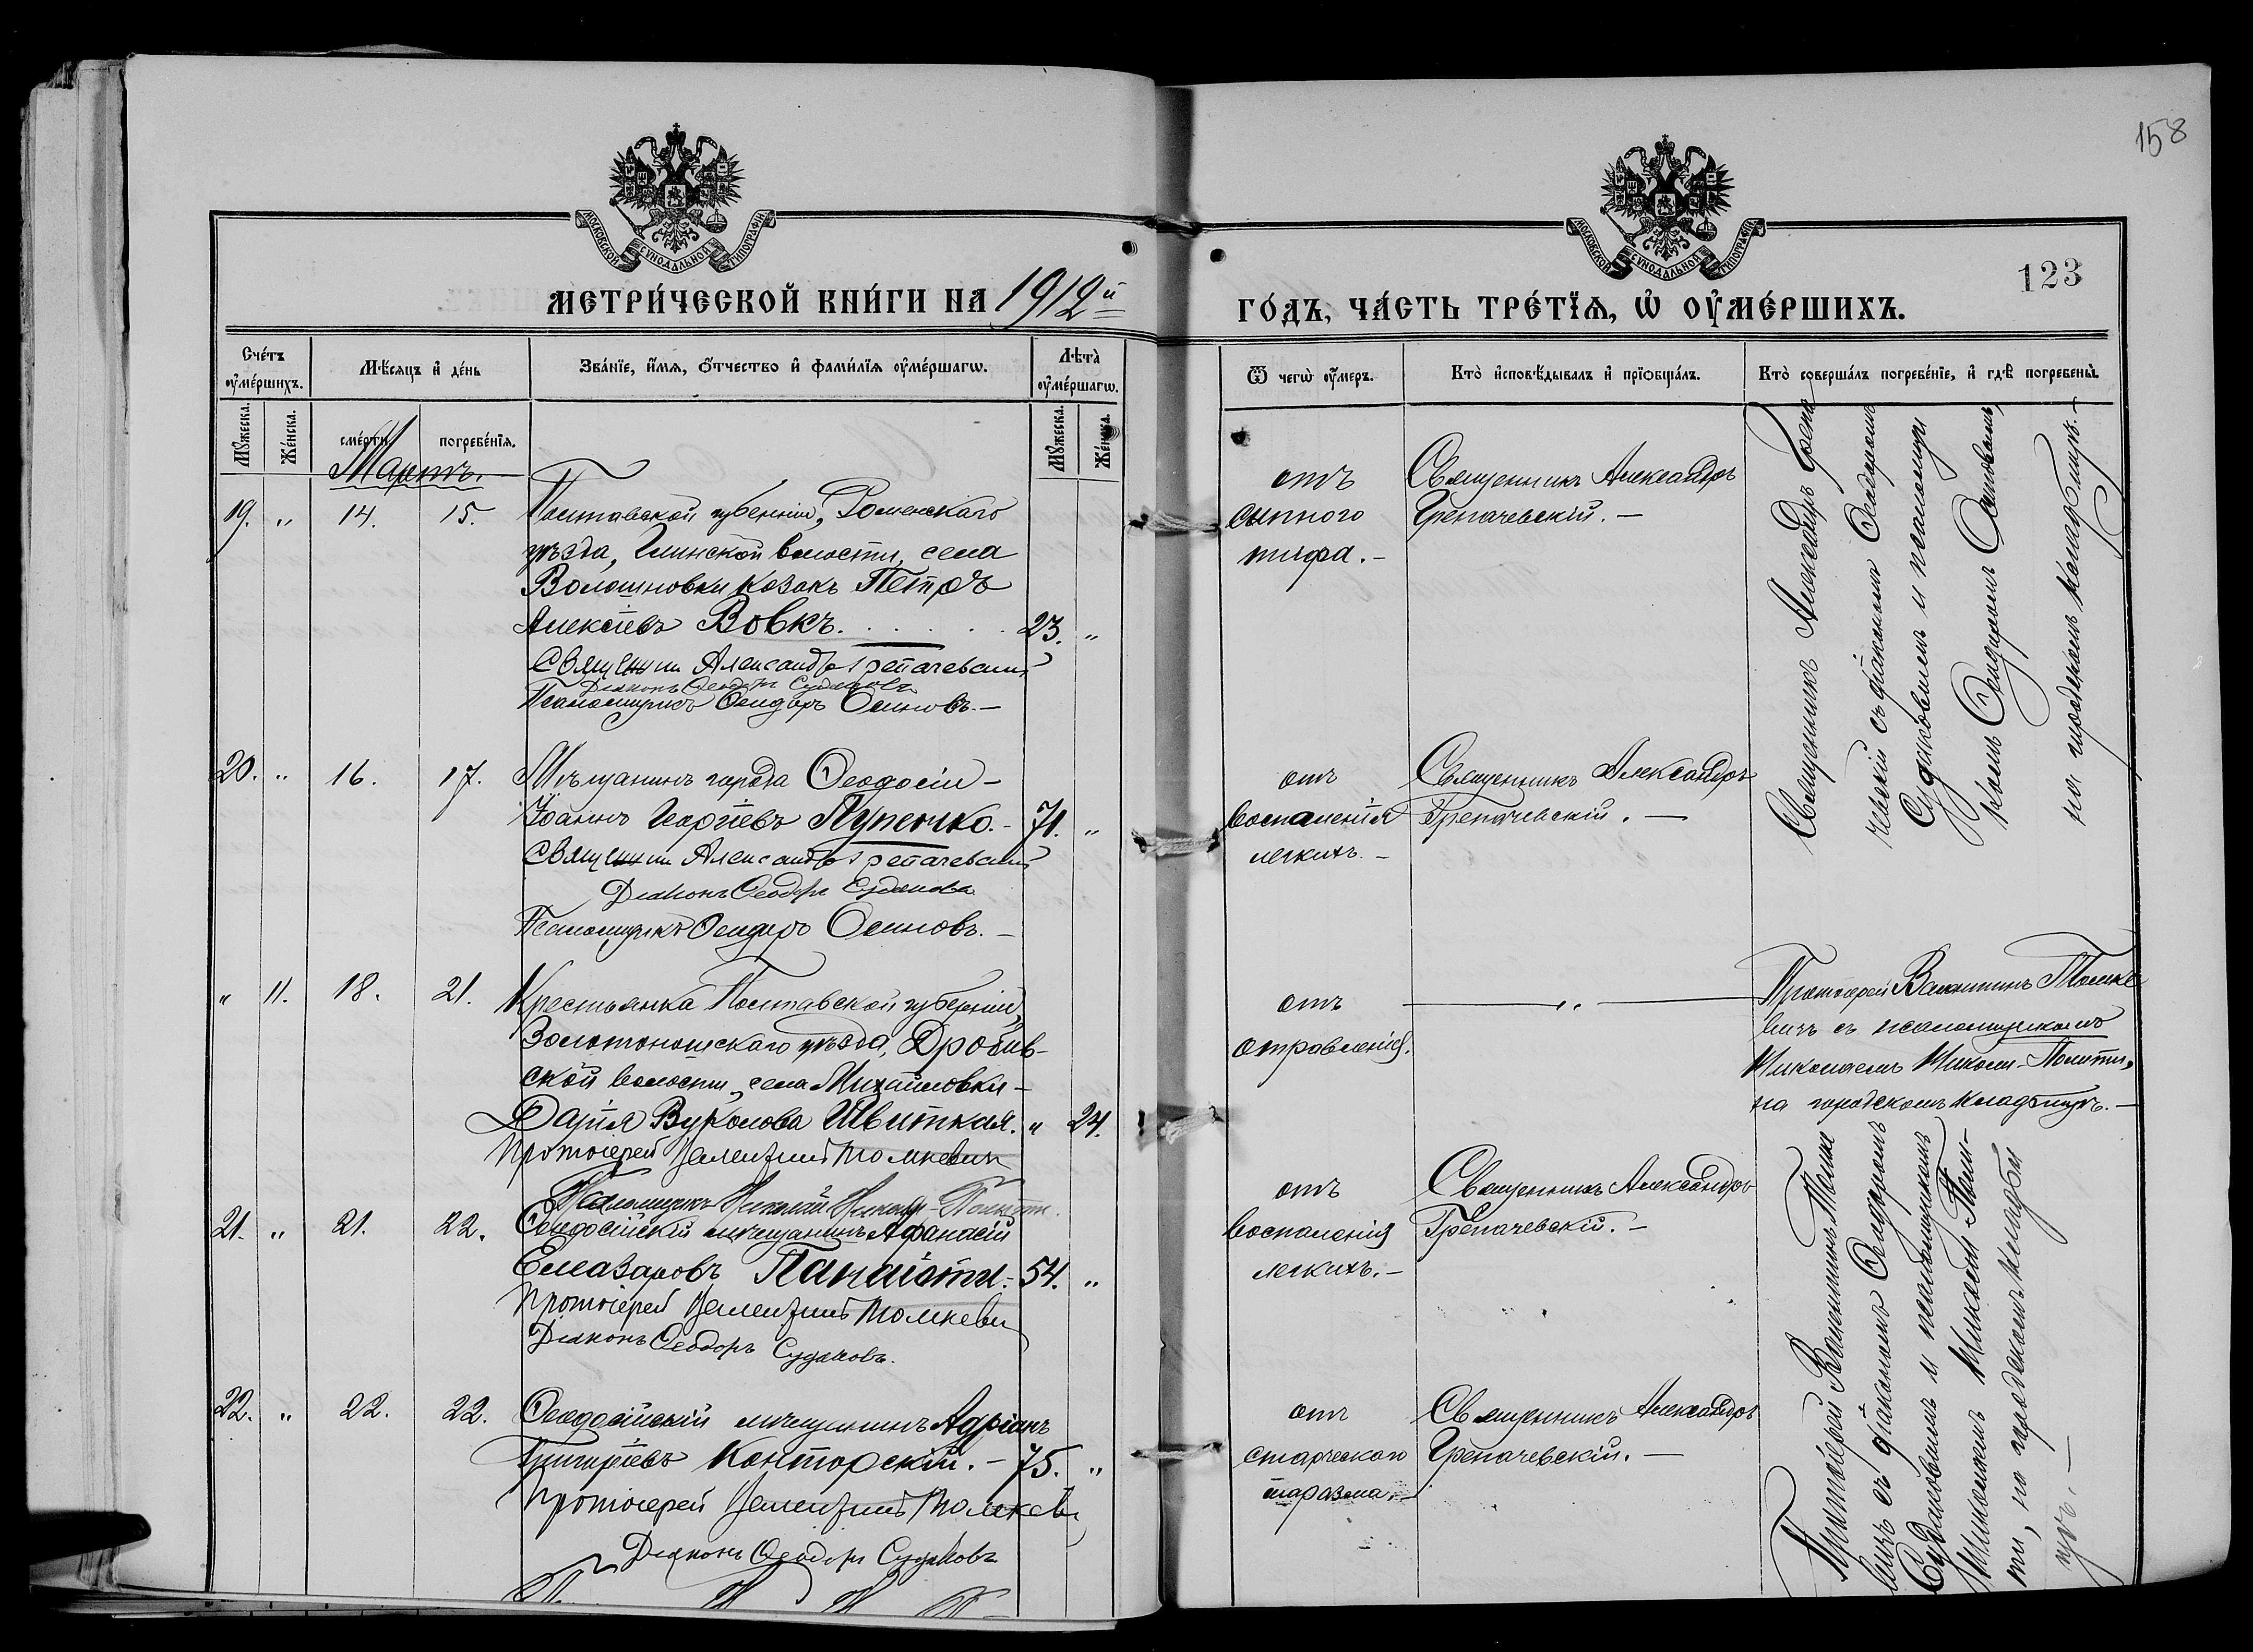 158
МОСКОВСКОЙ СѴНОДАЛЬНОЙ ТИПОГРАФІИ
МОСКОВСКОЙ СѴНОДАЛЬНОЙ ТИПОГРАФІИ
МЕТРИ́ЧЕСКОЙ КНИ́ГИ НА 1912й
ГО́ДЪ, ЧА́СТЬ ТРЕ́ТЇѦ, Ѽ ОУ҆МЕ́РШИХЪ.
123
Сче́тъ оу҆ме́ршихъ.
Мѣ́сяцъ и҆ де́нь
Зва́нїе, и҆́мѧ, ѻ҆́тчество и҆ фами́лїѧ оу҆ме́ршагѡ.
Лѣта̀ оу҆ме́ршагѡ.
Ѿ чегѡ̀ оу҆́меръ.
Кто̀ и҆сповѣ́дывалъ и҆ прїѡбща́лъ.
Кто̀ соверша́лъ погребе́нїе, и҆ гдѣ̀ погребены̀.
Мꙋ́жеска.
Же́нска.
сме́рти
погребе́нїѧ.
Мꙋ́жеска.
Же́нска.
Мартъ.
19. " 14. 15.
Полтавской губерніи, Роменскаго
уѣзда, Глинской волости, села
Волошновки козакъ Петръ
Алексѣевъ Вовкъ. 23. "
Священник Александръ Грепачевскій
Діаконъ Ѳеодоръ Судаковъ
Псаломщикъ Ѳеодоръ Осиновъ.-
отъ
сыпного
тифа.-
Священникъ Александръ
Грепачевскій.-
Священникъ Александръ Грепа
чевскій съ діакономъ Ѳеодоромъ
Судаковымъ и псаломщи
комъ Ѳеодоромъ Осиновымъ,
на городскомъ кладбищѣ.-
20. " 16. 17.
Мѣщанинъ города Ѳеодосіи-
Іоаннъ Георгіевъ Пупенко.- 71. "
Священник Александръ Грепачевскій
Діаконъ Ѳеодоръ Судаковъ
Псаломщикъ Ѳеодоръ Осиновъ.-
отъ
воспаленія
легкихъ.-
Священникъ Александръ
Грепачевскій.-
" 11. 18. 21.
Крестьянка Полтавской губерніи,
Золотоношскаго уѣзда, Дробив-
ской волости, села Михайловки-
Дарія Вуколова Швиткая. " 24.
Протоіерей Валентинъ Томкевич
Псаломщикъ Николай Николи-Политти.
отъ
отравленія.
— " —
Протоіерей Валентинъ Томке
вичъ съ псаломщикомъ
Николаемъ Николи-Политти,
на городскомъ кладбищѣ.-
21. " 21. 22.
Ѳеодосійскій мѣщанинъ Афанасій
Елеазаровъ Панаіоти.- 54. "
Протоіерей Валентинъ Томкевич
Діаконъ Ѳеодоръ Судаковъ.
отъ
воспаленія
легкихъ.-
Священникъ Александръ
Грепачевскій.-
Протоіерей Валентинъ Томке
вичъ съ діакономъ Ѳеодоромъ
Судаковымъ и псаломщикомъ
Николаемъ Николи-Полит-
ти, на городскомъ кладби
щѣ.-
22. " 22. 22.
Ѳеодосійскій мѣщанинъ Адріанъ
Григоріевъ Конторскій.- 75. "
Протоіерей Валентинъ Томкевич
Діаконъ Ѳеодоръ Судаковъ
отъ
старческаго
маразма.-
Священникъ Александръ
Грепачевскій.-